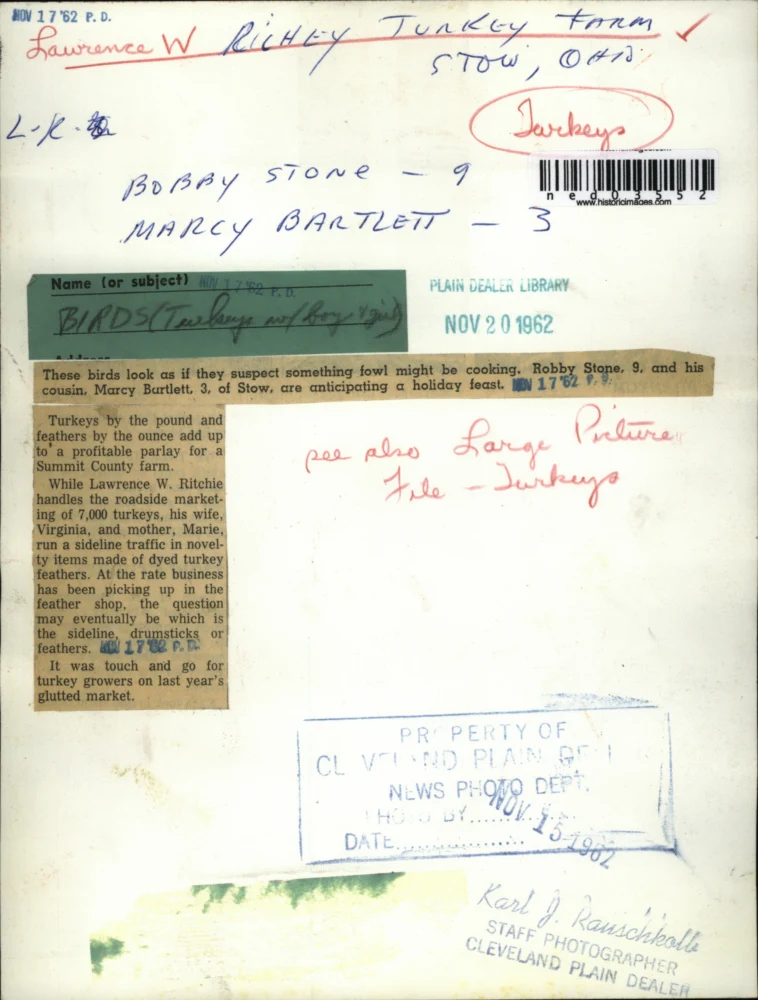 NOV 17 '62 P. D.
Lawrence W RICHEY TURKEY FARM
STOW, OHIO
L-R-
Turkeys
BOBBY STONE - 9
MARCY BARTLETT - 3
ned03552
www.historicimages.com
Name (or subject) NOV 17 '62 P. D.
BIRDS (Turkeys w/ boy & girl)
PLAIN DEALER LIBRARY
NOV 20 1962
These birds look as if they suspect something fowl might be cooking. Robby Stone, 9, and his
cousin, Marcy Bartlett, 3, of Stow, are anticipating a holiday feast. NOV 17 '62 P. D.
Turkeys by the pound and
feathers by the ounce add up
to a profitable parlay for a
Summit County farm.
While Lawrence W. Ritchie
handles the roadside market-
ing of 7,000 turkeys, his wife,
Virginia, and mother, Marie,
run a sideline traffic in novel-
ty items made of dyed turkey
feathers. At the rate business
has been picking up in the
feather shop, the question
may eventually be which is
the sideline, drumsticks or
feathers. NOV 17 '62 P. D.
It was touch and go for
turkey growers on last year's
glutted market.
see also Large Picture
File - Turkeys
PR PERTY OF
CL V ND PLAIN DE
NEWS PHOTO DEPT.
PHOTO BY..........
DATE..............
NOV 15 1962
Karl J. Rauschkolb
STAFF PHOTOGRAPHER
CLEVELAND PLAIN DEALER